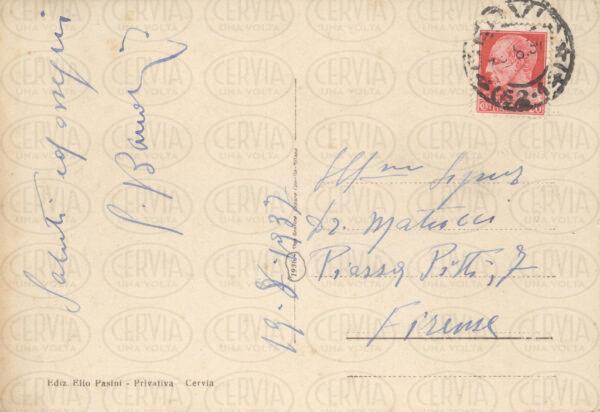 Saluti ed ossequi
19-8-1937
Ill.mo Signor
Dr. Matucci
Piazza Pitti, 7
Firenze
Ediz. Elio Pasini - Privativa Cervia
CERVIA
UNA VOLTA